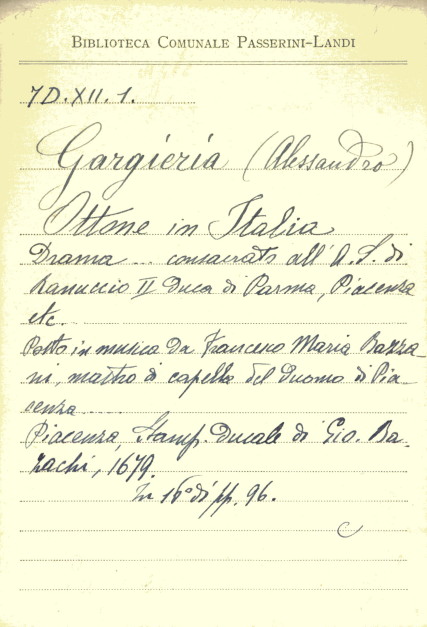 BIBLIOTECA COMUNALE PASSERINI-LANDI
7D.XII.1.
Gargieria (Alessandro)
Ottone in Italia
Drama ... consacrato all' A. S. di
Ranuccio II Duca di Parma, Piacenza
etc.
Posto in musica da Francesco Maria Bazza-
ni, mastro di capella del Duomo di Pia-
cenza ....
Piacenza, Stamp. Ducale di Gio. Ba-
zachi, 1679.
In 16° di pp. 96.
C